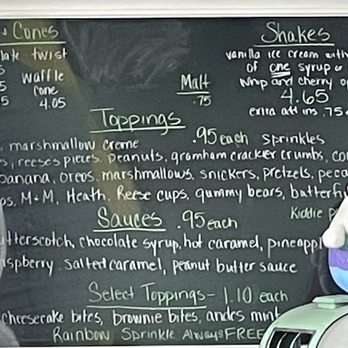 Cones
Shakes
twist
vanilla ice cream with
of one syrup or
waffle
cone
4.05
Malt
.75
whip and cherry
4.65
extra add ins .75
Toppings
.95 each sprinkles
marshmallow creme
reeses pieces, peanuts, graham cracker crumbs,
banana, oreos, marshmallows, snickers, pretzels,
M+M, Heath, Reese cups, gummy bears,
Sauces .95 each
Kiddie
chocolate syrup, hot caramel,
salted caramel, peanut butter sauce
Select Toppings - 1.10 each
cheesecake bites, brownie bites, andes mint
Rainbow Sprinkle Always FREE